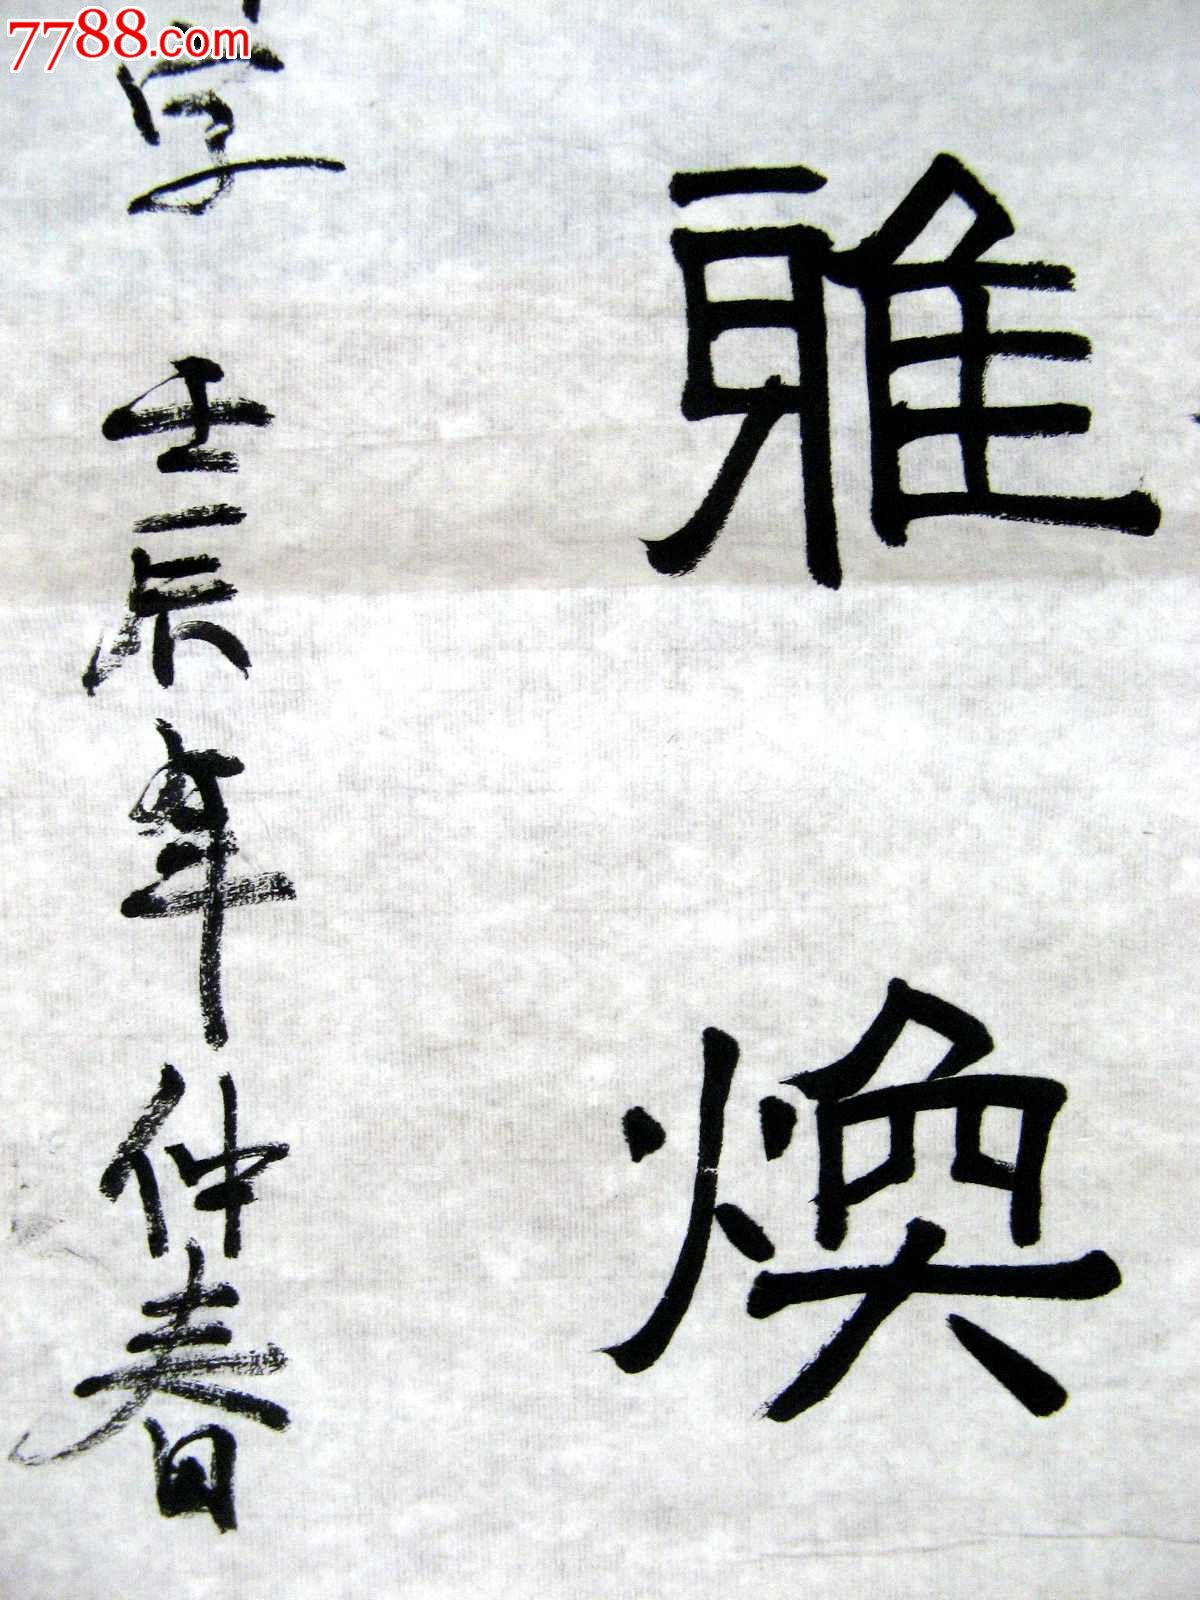 7788.com
雅煥
字 壬辰年仲春